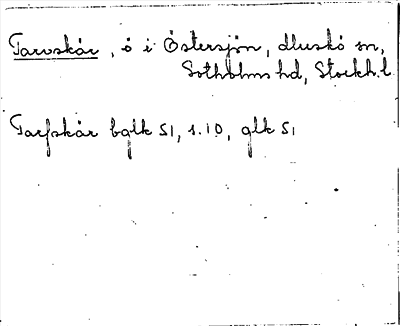 Tarvskär, ö i Östersjön, Ðluskö sn,
Sotholms hd, Stockh. l
Tarfskär bglk 51, 1.10, glk 51